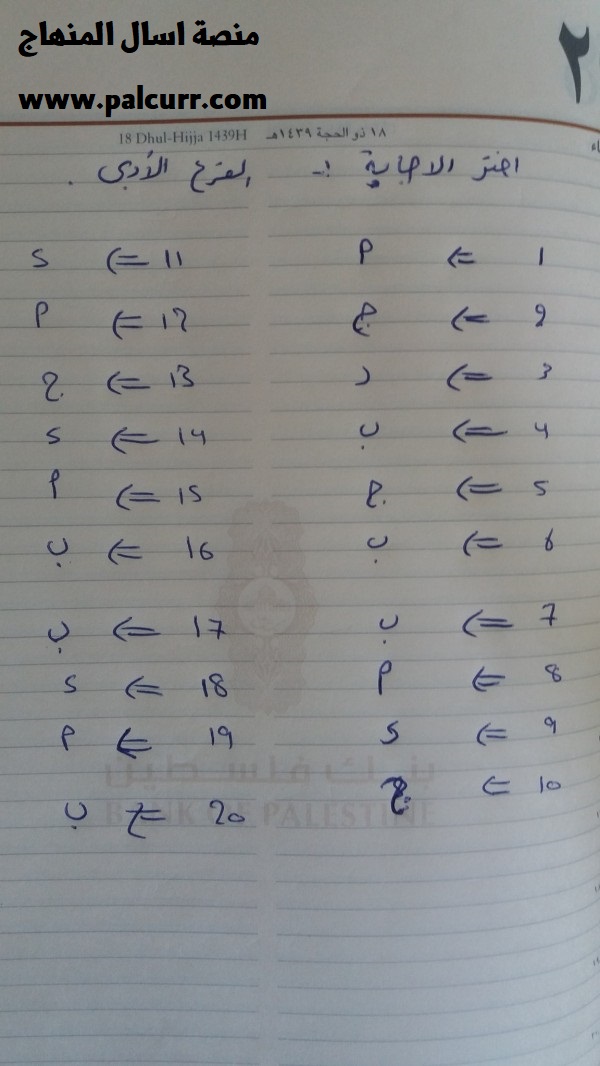 منصة اسال المنهاج
www.palcurr.com
٢
18 Dhul-Hijja 1439H ١٨ ذو الحجة ١٤٣٩هـ
اختر الاجابة :- الفرع الأدبي .
1 <= أ 11 <= د
2 <= ج 12 <= أ
3 <= د 13 <= ج
4 <= ب 14 <= د
5 <= ج 15 <= أ
6 <= ب 16 <= ب
7 <= ب 17 <= ب
8 <= أ 18 <= د
9 <= د 19 <= أ
10 <= ج 20 <= ب
بنك فلسطين
BANK OF PALESTINE